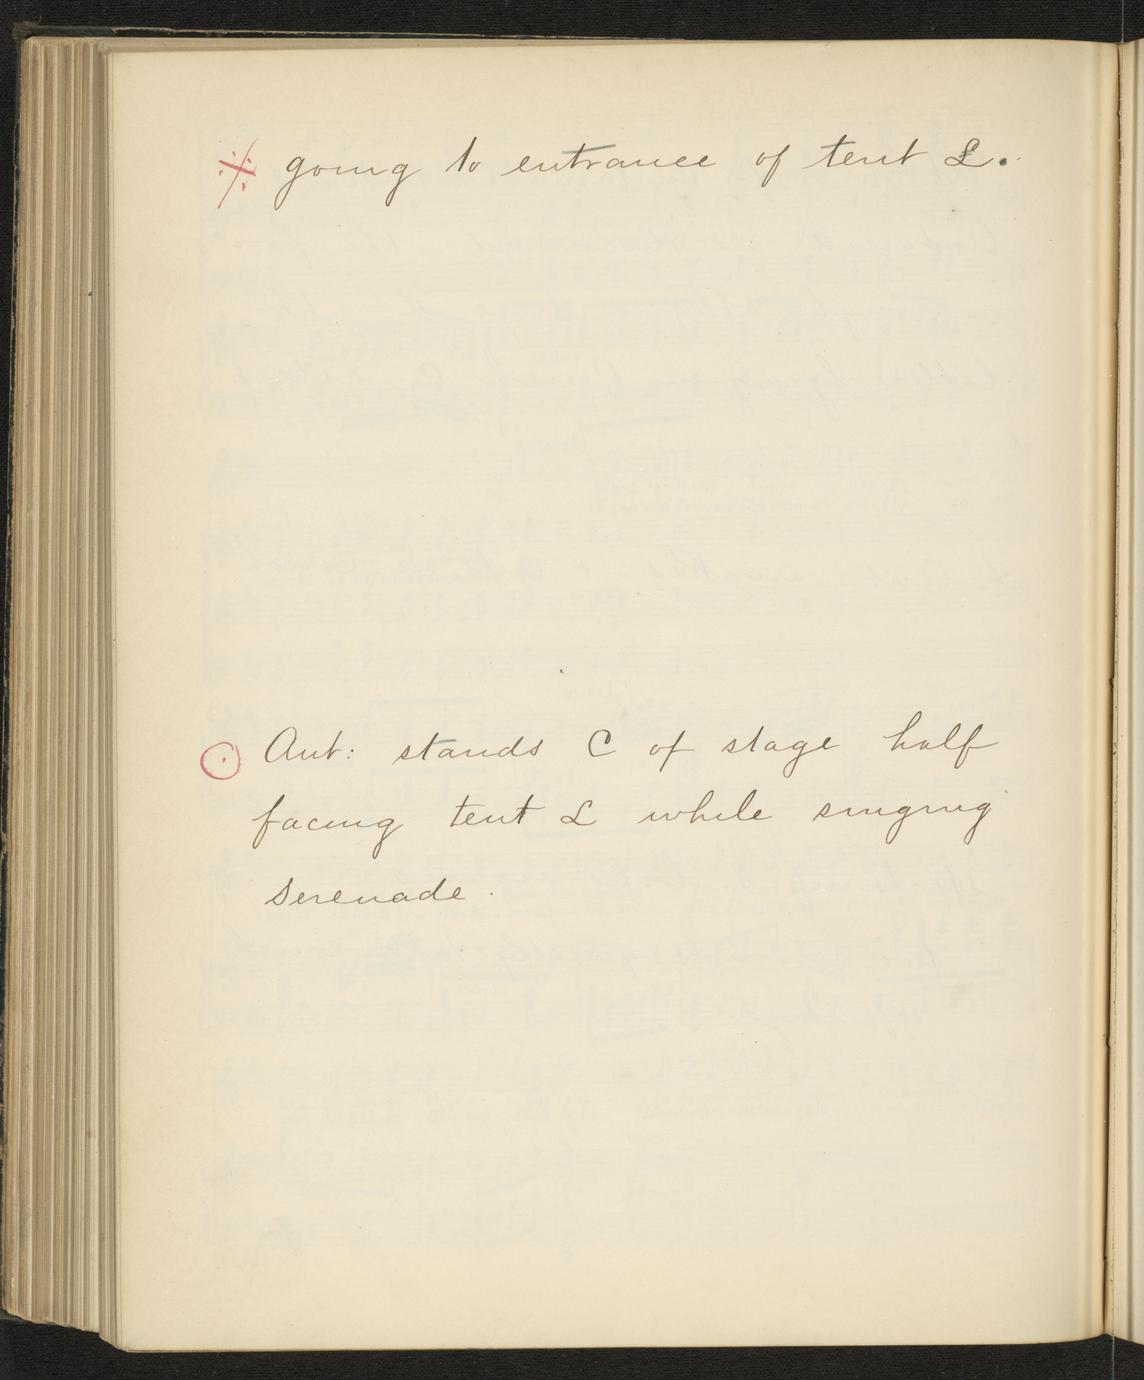 ※ going to entrance of tent L.
⊙ Ant: stands C of stage half
facing tent L while singing
serenade.